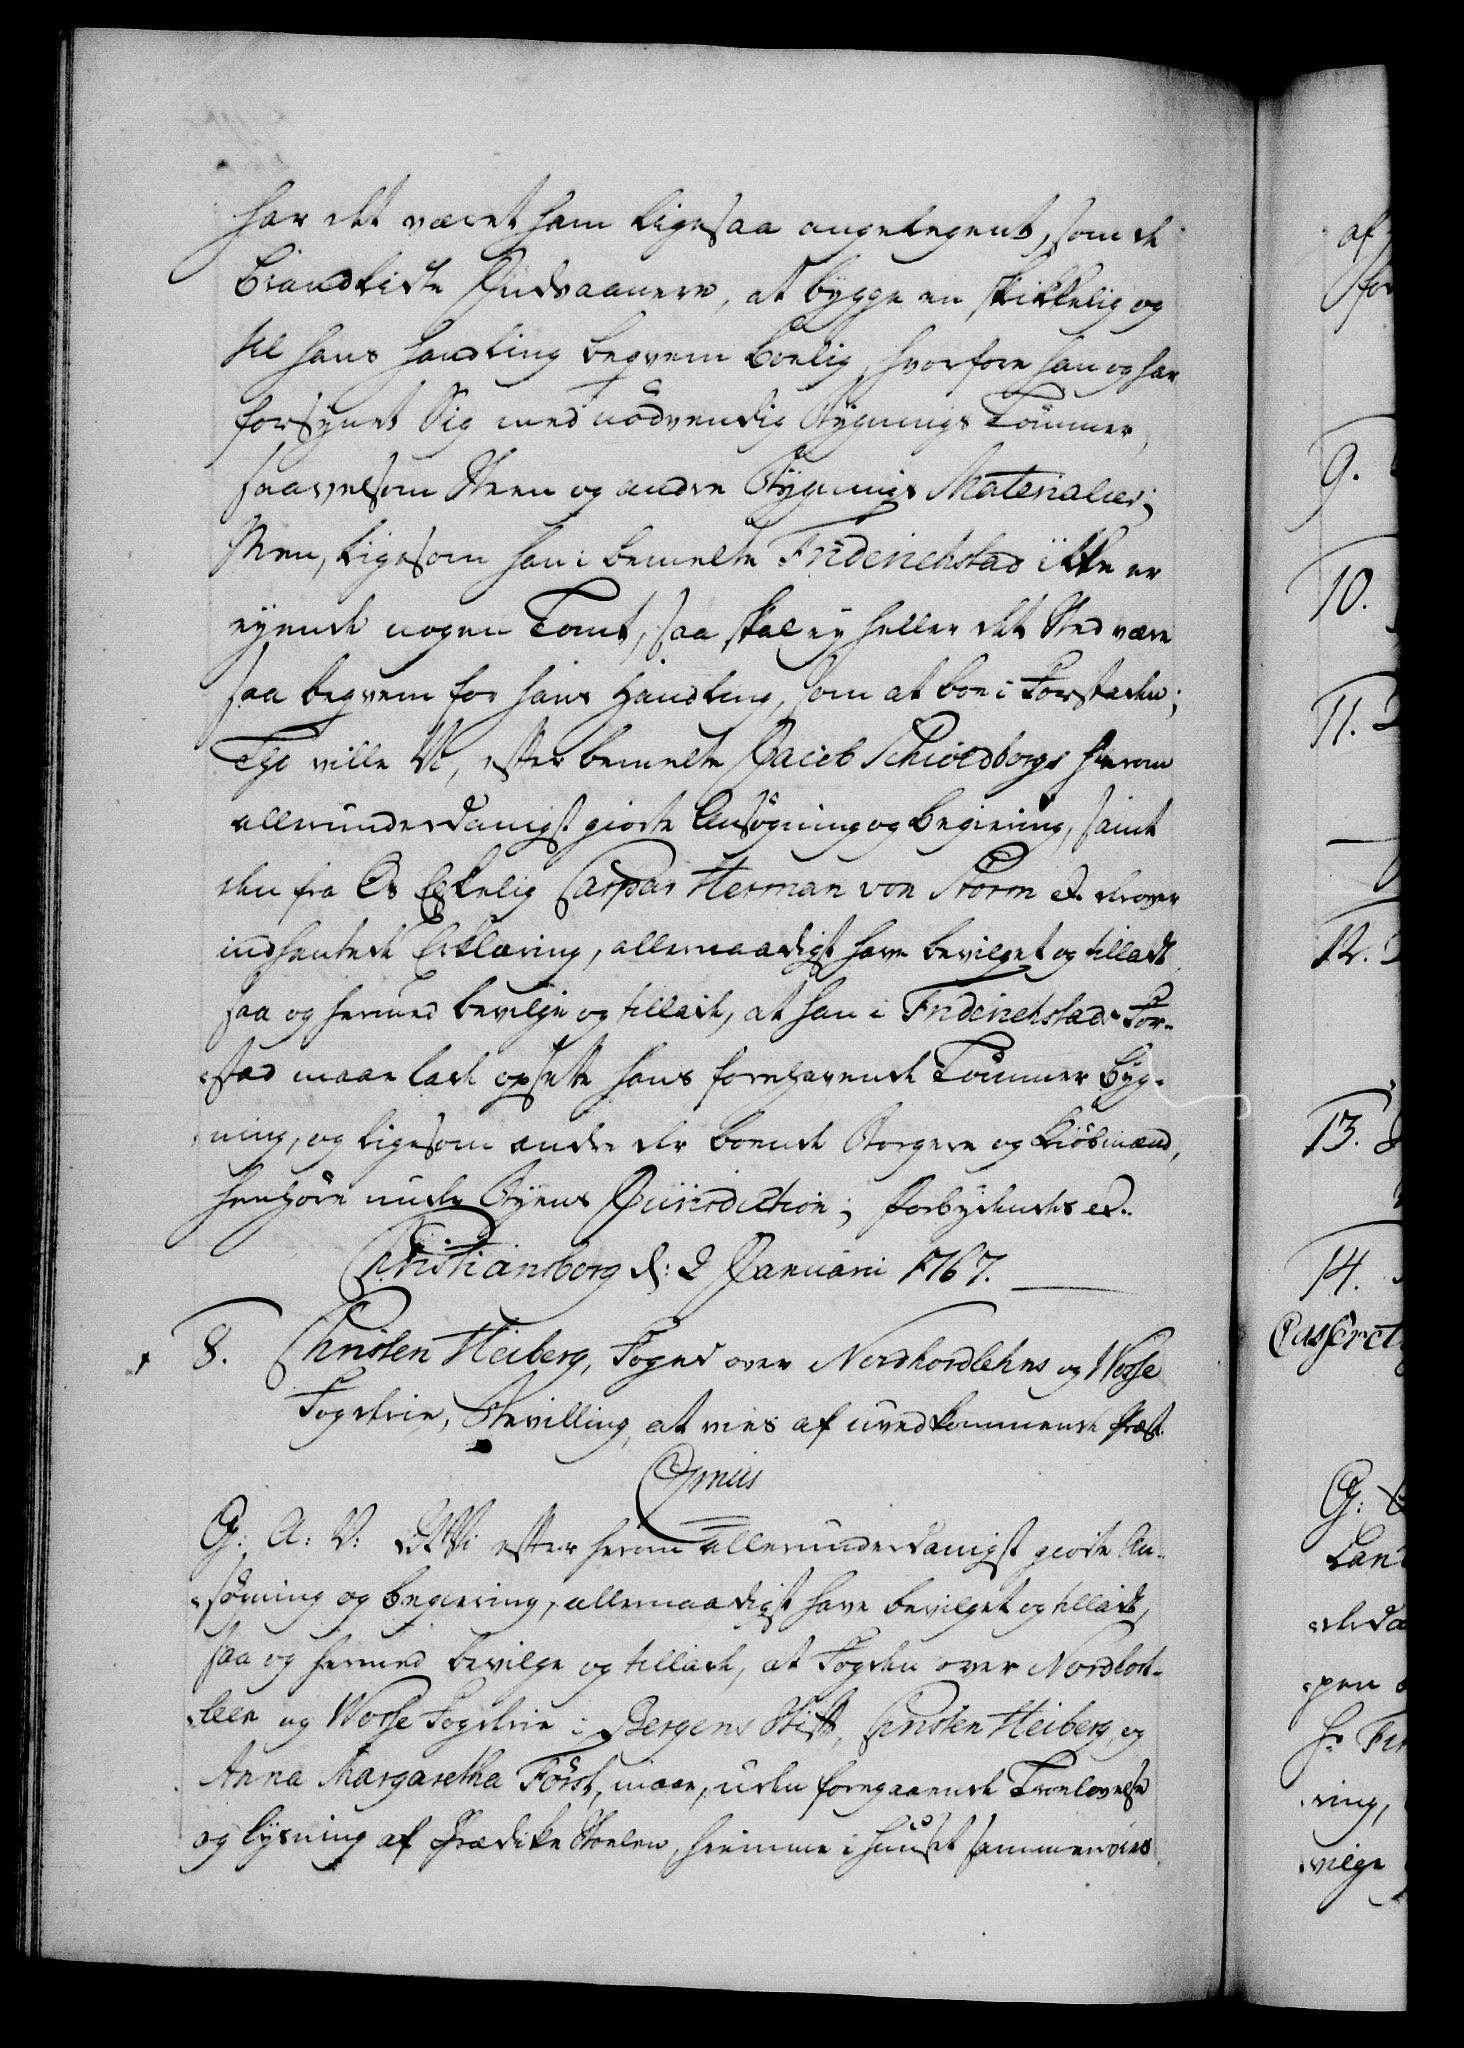 har det været ham ligesaa angelegent, som de
brandlidte Indvaanere, at bygge en skikkelig og
til hans Handling beqvem boelig, hvorfore han og har
forsynet Sig med nödvendig Bygnings Tömmer,
saavelsom Steen og andre Bygnings Materialier;
Men, ligesom han i bemelte Friderichstad ikke er
eyende nogen Tomt, saa skal ey heller det Sted være
saa beqvem for hans Handling, som at boe i Forstaden;
Thi ville Vi, efter bemelte Jacob Schioldborgs herom
allerunderdanigst giorte Ansögning og begiering, samt
den fra Os Elskelig Caspar Herman von Storm &c. derover
indhentede Erklæring, allernaadigst have bevilget og tilladt,
saa og hermed bevilge og tillade, at han i Friderichstads For-
stad maae lade opsette hans forehavende Tömmer byg-
ning, og ligesom andre der boende Borgere og Kiöbmænd,
henhöre under Byens Jurisdiction; Forbydendes &c.
Christiansborg d: 2 Januarii 1767.
8. Christen Heiberg, Foged over Nordhordlehns og Wosse
Fogderie, Bevilling, at vies af uvedkommende Præst.
Gratis
G: A: V: at Vi efter herom allerunderdanigst giorte An-
søgning og begiering, allernaadigst have bevilget og tilladt,
saa og hermed bevilge og tillade, at Fogden over Nordhord-
leen og Wosse Fogderie i Bergens Stift, Christen Heiberg, og
Anna Margaretha Först, maae, uden foregaaende Troelovelse
og lysning af Prædike Stolen, hiemme i Huuset sammenvies
af
for
9.
10.
11.
12.
13.
14.
Casseret
G:
Land
ring,
vilge